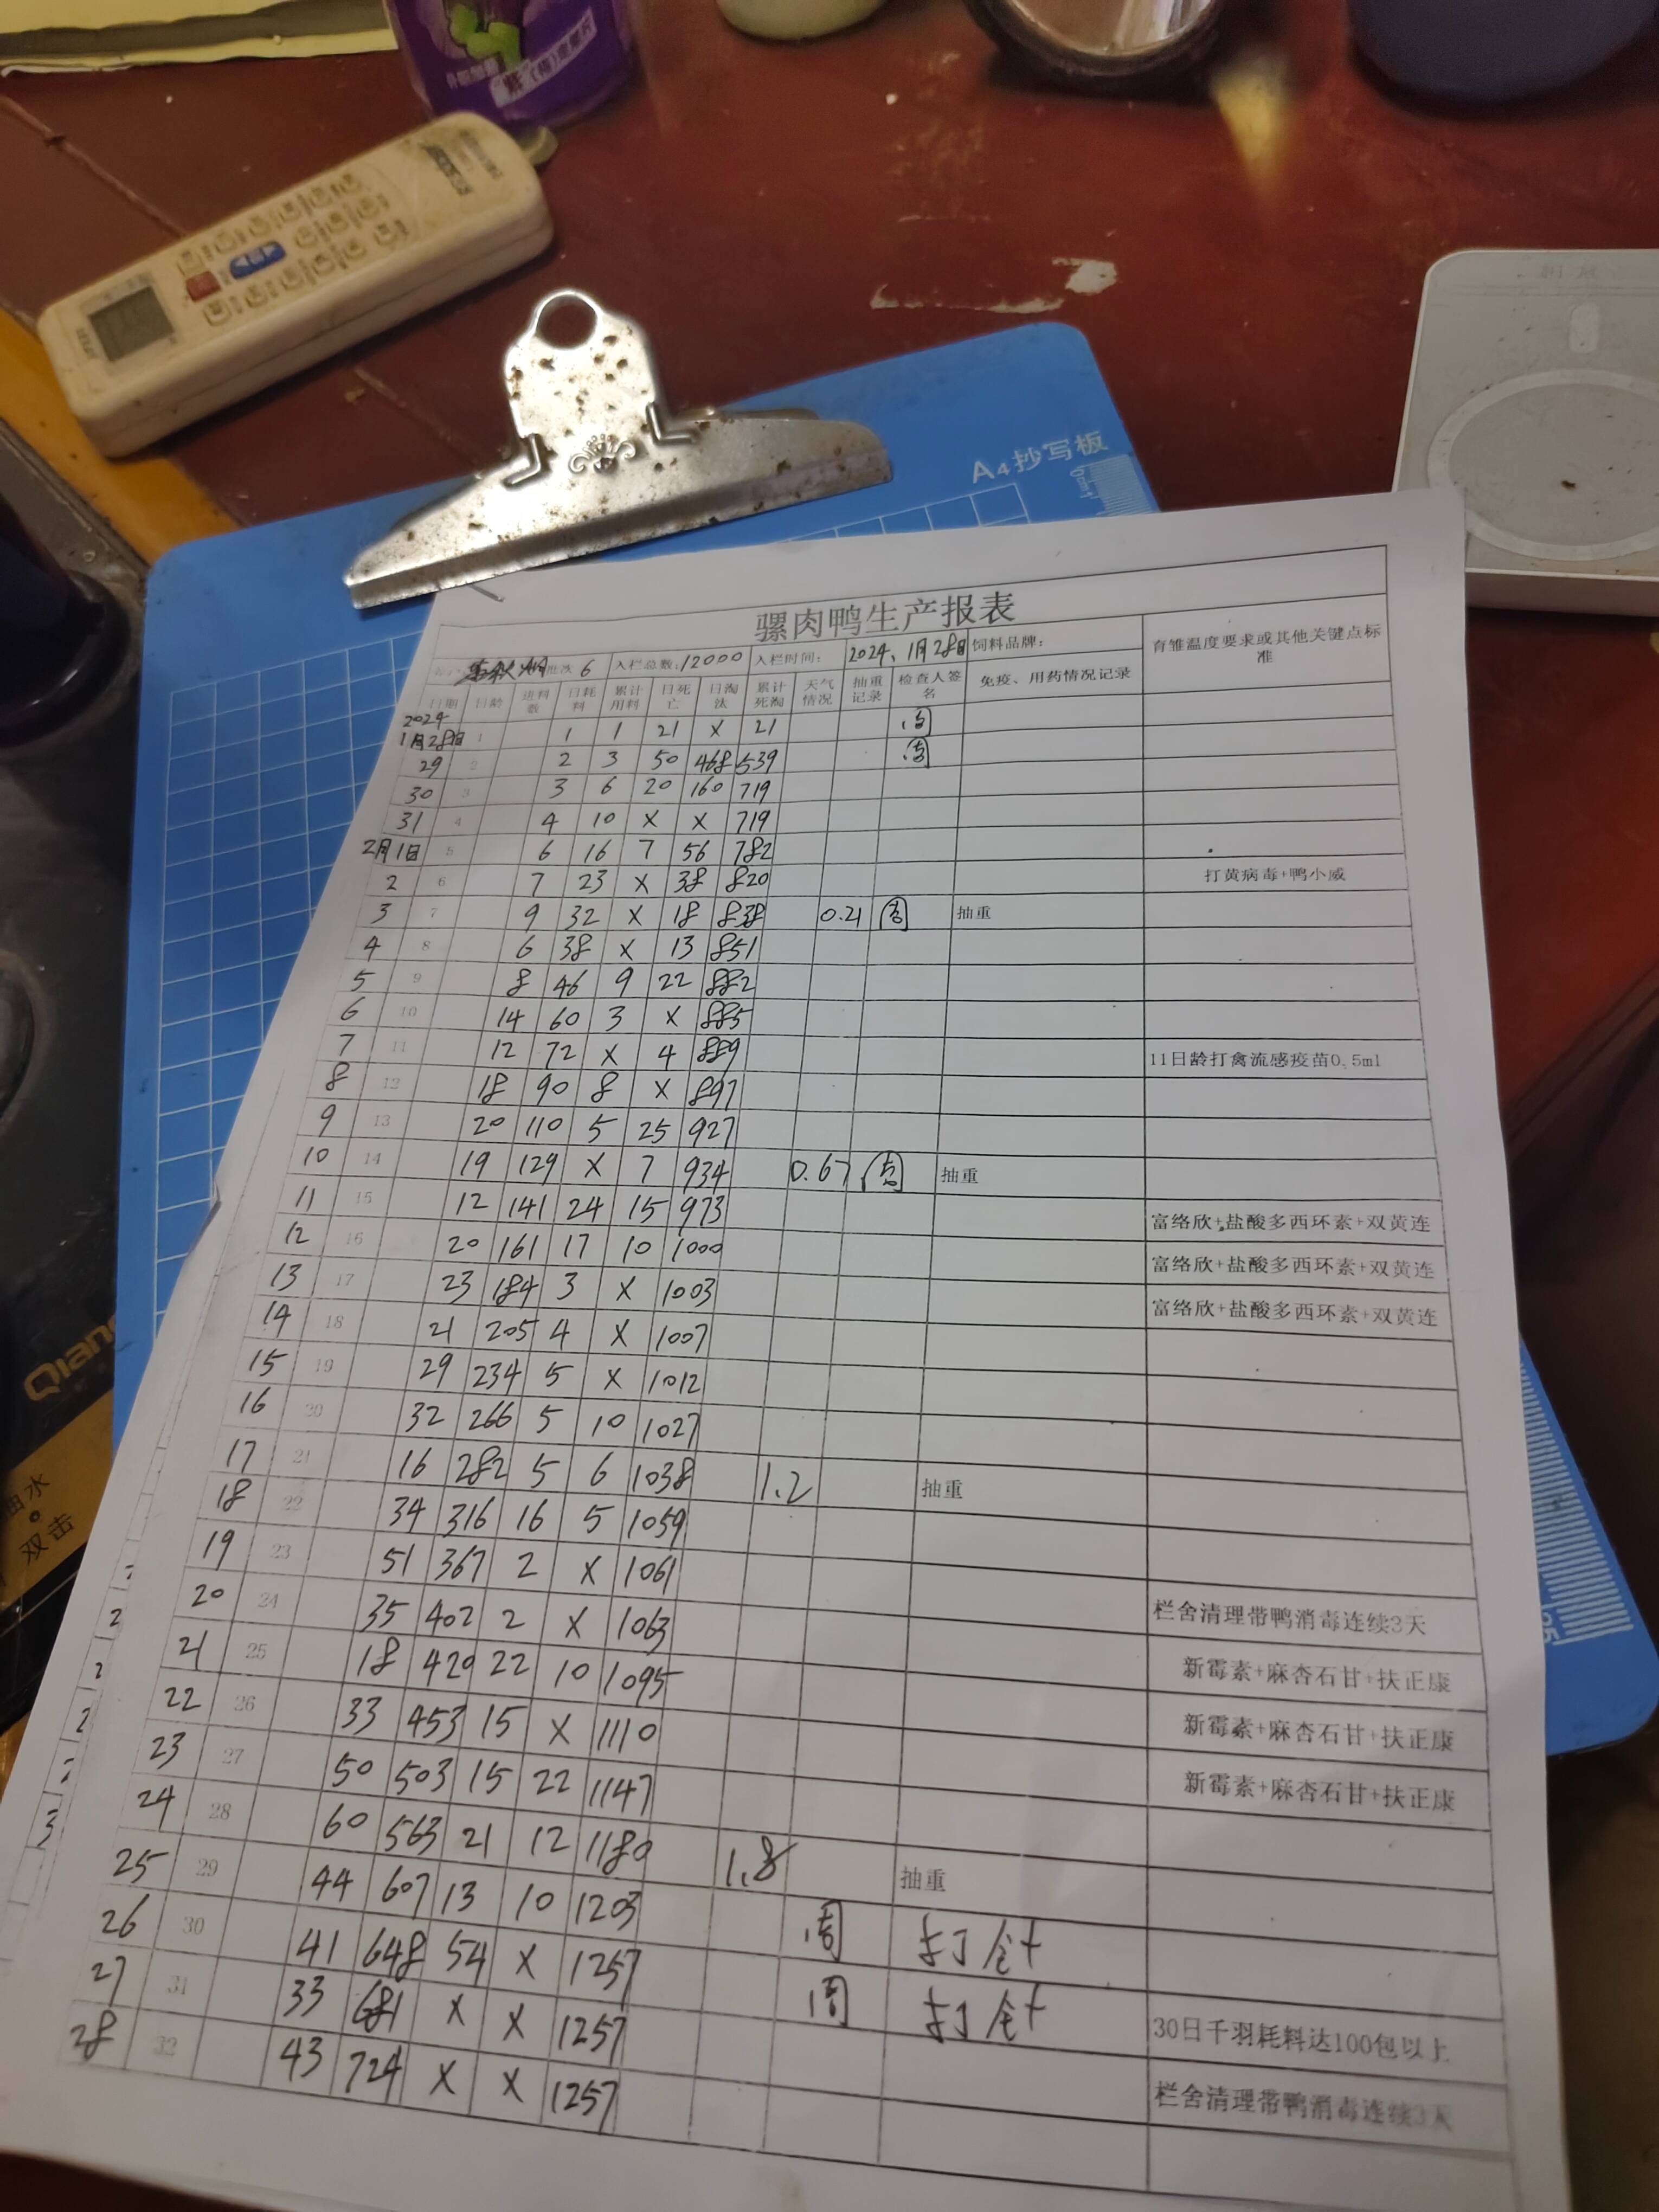 A4抄写板
骡肉鸭生产报表
批次 6 入栏总数:12000 入栏时间: 2024、1月28日 饲料品牌: 育雏温度要求或其他关键点标准
日期 日龄 进料数 日耗料 累计用料 日死亡 日淘汰 累计死淘 天气情况 抽重记录 检查人签名 免疫、用药情况记录
2024
1月28日 1 1 1 21 X 21 周
29 2 2 3 50 468 539 周
30 3 3 6 20 160 719
31 4 4 10 X X 719
2月1日 5 6 16 7 56 782
2 6 7 23 X 38 820 打黄病毒+鸭小威
3 7 9 32 X 18 838 0.21 周 抽重
4 8 6 38 X 13 851
5 9 8 46 9 22 882
6 10 14 60 3 X 885
7 11 12 72 X 4 889 11日龄打禽流感疫苗0.5ml
8 12 18 90 8 X 897
9 13 20 110 5 25 927
10 14 19 129 X 7 934 0.67 周 抽重
11 15 12 141 24 15 973 富络欣+盐酸多西环素+双黄连
12 16 20 161 17 10 1000 富络欣+盐酸多西环素+双黄连
13 17 23 184 3 X 1003 富络欣+盐酸多西环素+双黄连
14 18 21 205 4 X 1007
15 19 29 234 5 X 1012
16 20 32 266 5 10 1027
17 21 16 282 5 6 1038 1.2 抽重
18 22 34 316 16 5 1059
19 23 51 367 2 X 1061
20 24 35 402 2 X 1063 栏舍清理带鸭消毒连续3天
21 25 18 420 22 10 1095 新霉素+麻杏石甘+扶正康
22 26 33 453 15 X 1110 新霉素+麻杏石甘+扶正康
23 27 50 503 15 22 1147 新霉素+麻杏石甘+扶正康
24 28 60 563 21 12 1180 1.8 抽重
25 29 44 607 13 10 1203 周 打针
26 30 41 648 54 X 1257 周 打针
27 31 33 681 X X 1257 30日千羽耗料达100包以上
28 32 43 724 X X 1257 栏舍清理带鸭消毒连续3天
Qiang
抽水
双击